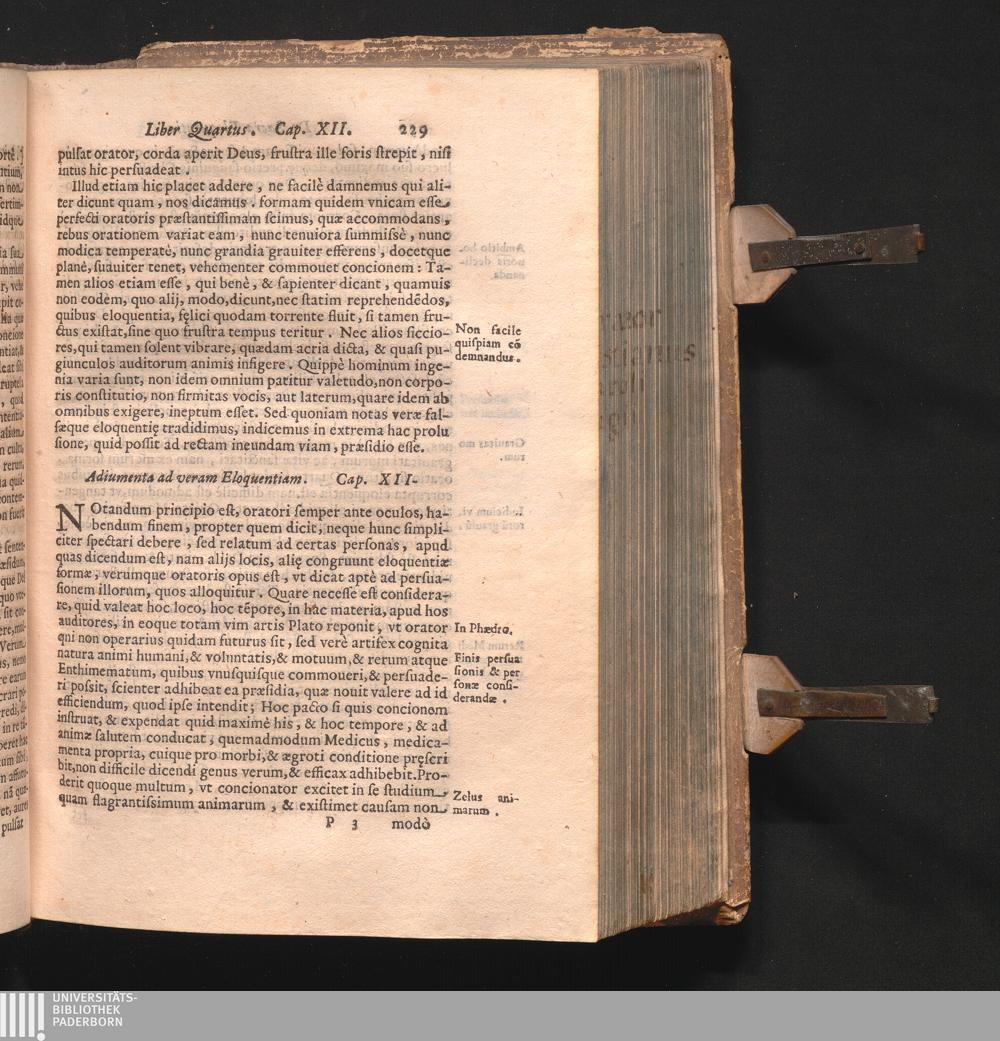 Liber Quartus. Cap. XII. 229
pulſat orator, corda aperit Deus, fruſtra ille foris ſtrepit, niſi
intus hic perſuadeat.
Illud etiam hic placet addere, ne facilè damnemus qui ali-
ter dicunt quam, nos dicamus. formam quidem vnicam eſſe
perfecti oratoris præſtantiſſimam ſcimus, quæ accommodans
rebus orationem variat eam, nunc tenuiora ſummiſsè, nunc
modica temperatè, nunc grandia grauiter efferens, docetque
planè, ſuauiter tenet, vehementer commouet concionem: Ta-
men alios etiam eſſe, qui benè, & ſapienter dicant, quamuis
non eodem, quo alij, modo, dicunt, nec ſtatim reprehendẽdos,
quibus eloquentia, fęlici quodam torrente fluit, ſi tamen fru-
ctus exiſtat, ſine quo fruſtra tempus teritur. Nec alios ſiccio-
res, qui tamen ſolent vibrare, quædam acria dicta, & quaſi pu-
giunculos auditorum animis infigere. Quippè hominum inge-
nia varia ſunt, non idem omnium patitur valetudo, non corpo-
ris conſtitutio, non firmitas vocis, aut laterum, quare idem ab
omnibus exigere, ineptum eſſet. Sed quoniam notas veræ fal-
ſæque eloquentię tradidimus, indicemus in extrema hac prolu
ſione, quid poſſit ad rectam ineundam viam, præſidio eſſe.
Non facile
quiſpiam cõ
demnandus.
Adiumenta ad veram Eloquentiam. Cap. XII-
NOtandum principio eſt, oratori ſemper ante oculos, ha-
bendum finem, propter quem dicit, neque hunc ſimpli-
citer ſpectari debere, ſed relatum ad certas perſonas, apud
quas dicendum eſt, nam alijs locis, alię congruunt eloquentiæ
formæ, verùmque oratoris opus eſt, vt dicat aptè ad perſua-
ſionem illorum, quos alloquitur. Quare neceſſe eſt conſidera-
re, quid valeat hoc loco, hoc tẽpore, in hac materia, apud hos
auditores, in eoque totam vim artis Plato reponit, vt orator
qui non operarius quidam futurus ſit, ſed verè artifex cognita
natura animi humani, & voluntatis, & motuum, & rerum atque
Enthimematum, quibus vnuſquiſque commoueri, & perſuade-
ri poſſit, ſcienter adhibeat ea præſidia, quæ nouit valere ad id
efficiendum, quod ipſe intendit; Hoc pacto ſi quis concionem
inſtruat, & expendat quid maximè his, & hoc tempore, & ad
animæ ſalutem conducat, quemadmodum Medicus, medica-
menta propria, cuique pro morbi, & ægroti conditione pręſcri
bit, non difficile dicendi genus verum, & efficax adhibebit. Pro-
derit quoque multum, vt concionator excitet in ſe ſtudium
quam flagrantiſsimum animarum, & exiſtimet cauſam non
In Phædro.
Finis perſua
ſionis & per
ſonæ conſi-
derandæ.
Zelus ani-
marum.
P 3 modò
UNIVERSITÄTS-
BIBLIOTHEK
PADERBORN